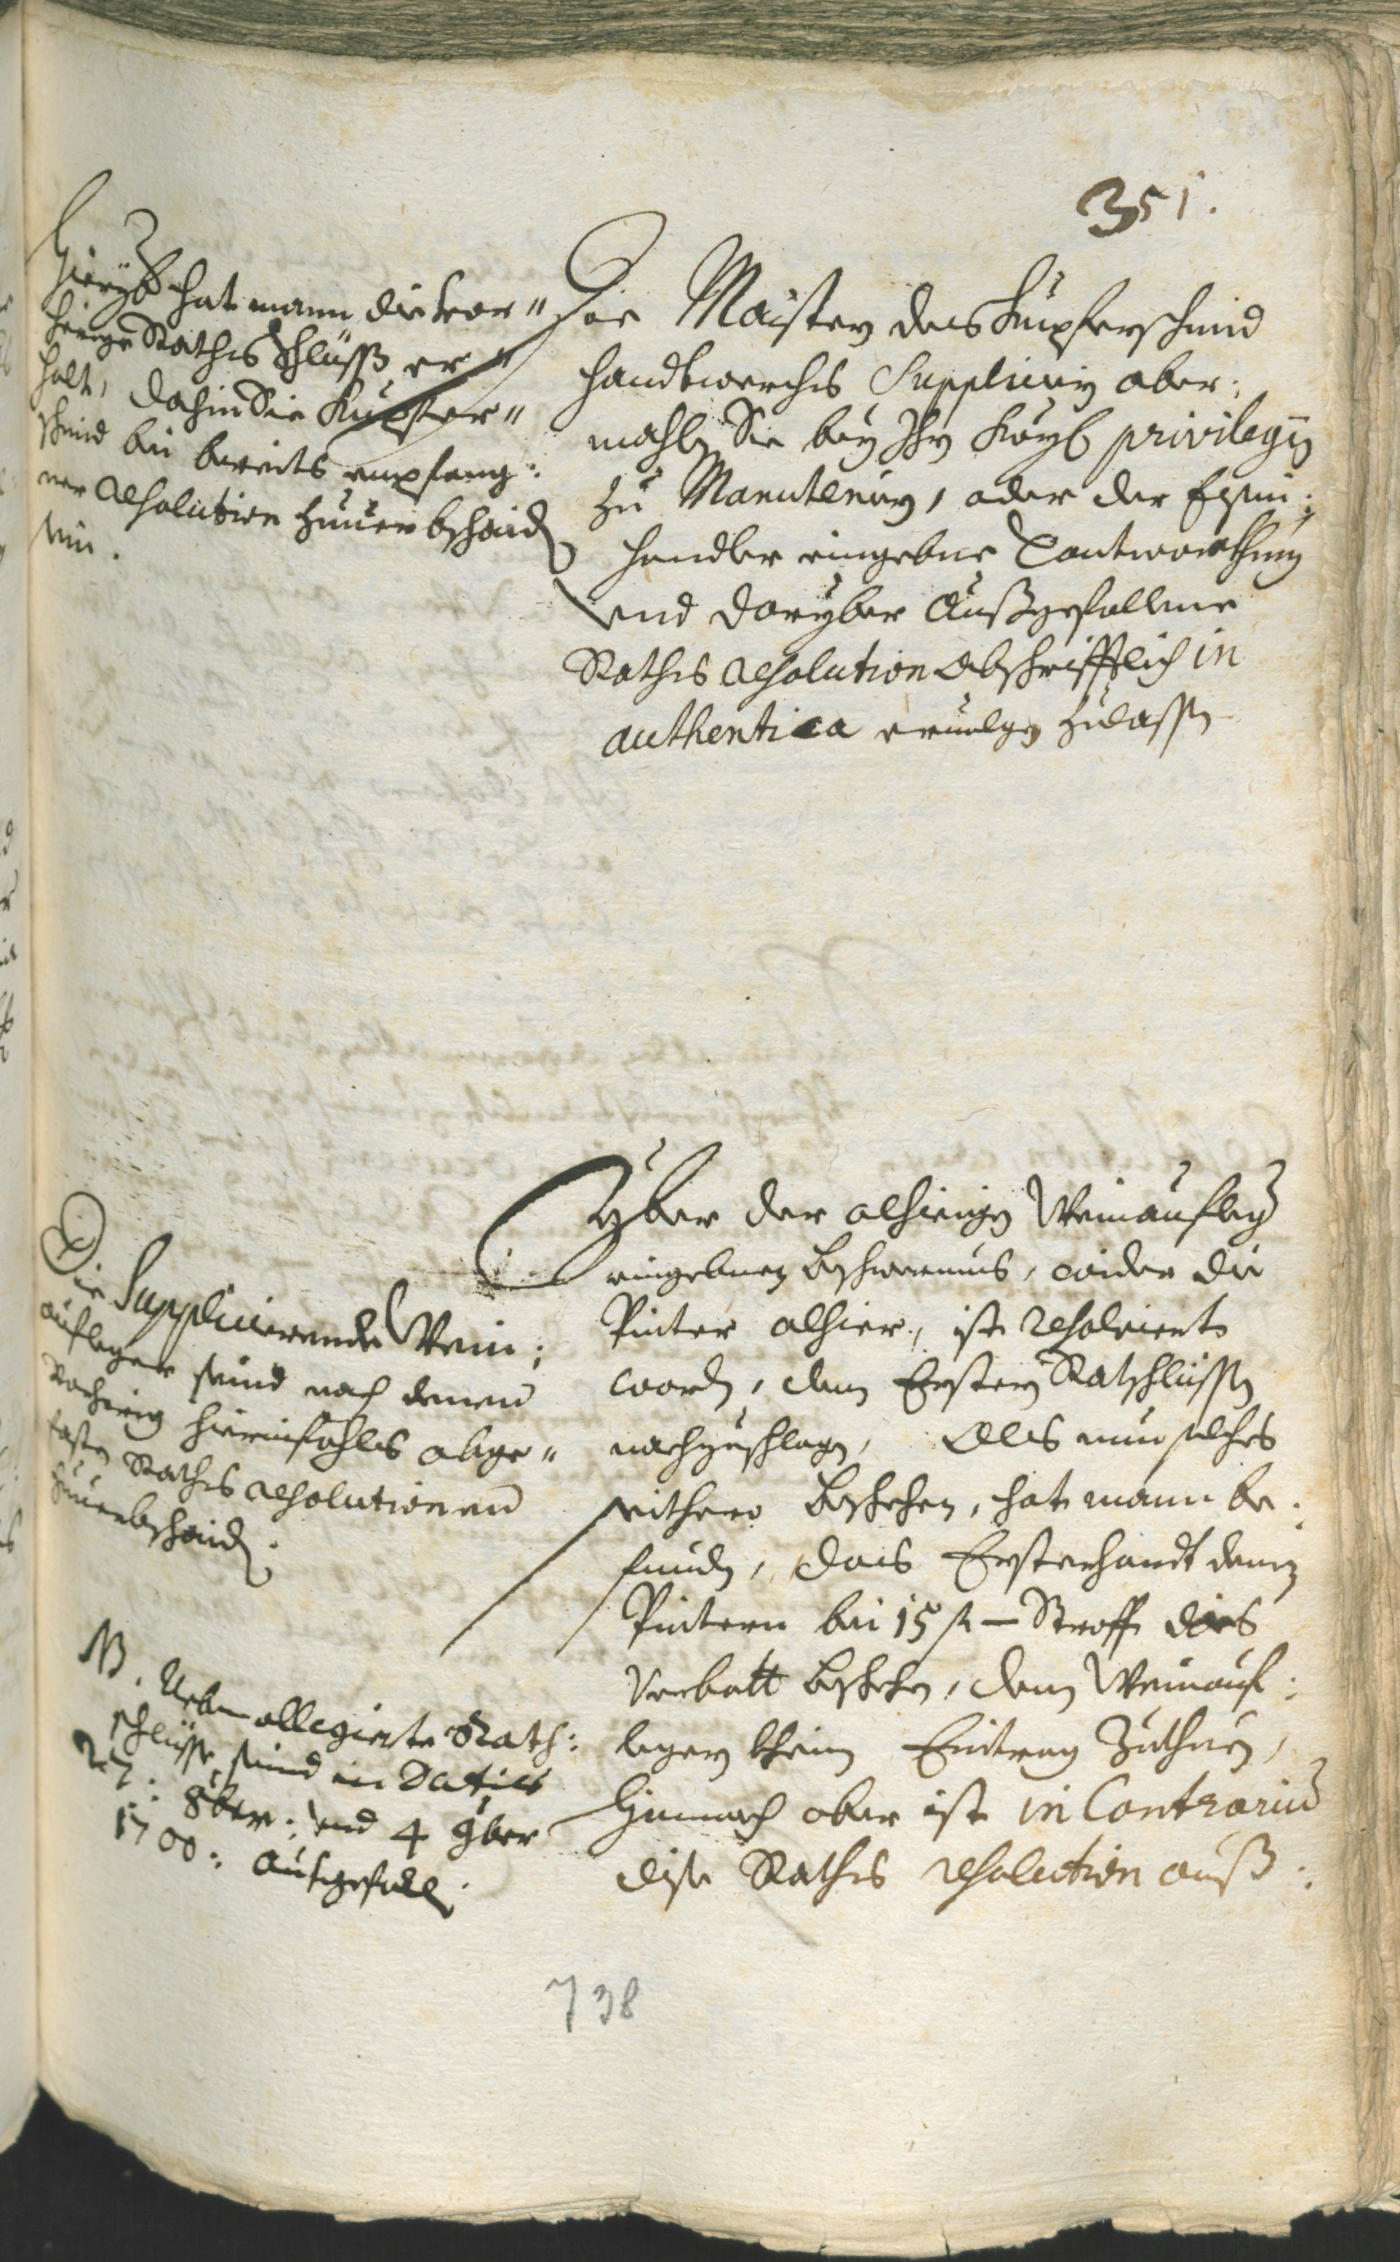 351.
Hieryber hat mann die vor"
herige Rathsschlüss er"
holt, dahin Sie Kupfer"
schmid bei bereits empfang:
ner resolution zuuerbschaiden
sein.
Die Maister des Kupferschmid
handtwerchs Supplicirn aber:
mahln Sie bey Ihr Kayl: privilegijs
zu Manuteniern, oder der Eysen:
handler eingebne
und daryber Außgefallene
Raths resolution Abschrifftlich in
authentica eruolgen zulassen
Die Supplicierende Wein:
aufleger seind nach denen
vorherig hierinfahls abge"
fasten Raths resolutionen
zuuerbschaiden.
NB. Neben allegierte Rath:
schlüsse seind in Datis
27: 8ber: und 4 9ber
1700: außgefallen.
Yber der alhieigen Weinaufleger
eingebnen beschwernus, wider die
Pinter alhier, ist resolvierts
worden, dem Ersten Ratschlüssen
nachzuschlagen, Als nun solches
seithero beschehen, hat mann be:
funden, das Ersterhandt denen
Pintern bei 15 fl – Straff das
Verbott beschehen, denen Weinauf:
legern khein Eintrag zuthuen,
Hernach aber ist in Contrarium
dise Raths resolution auß:
738